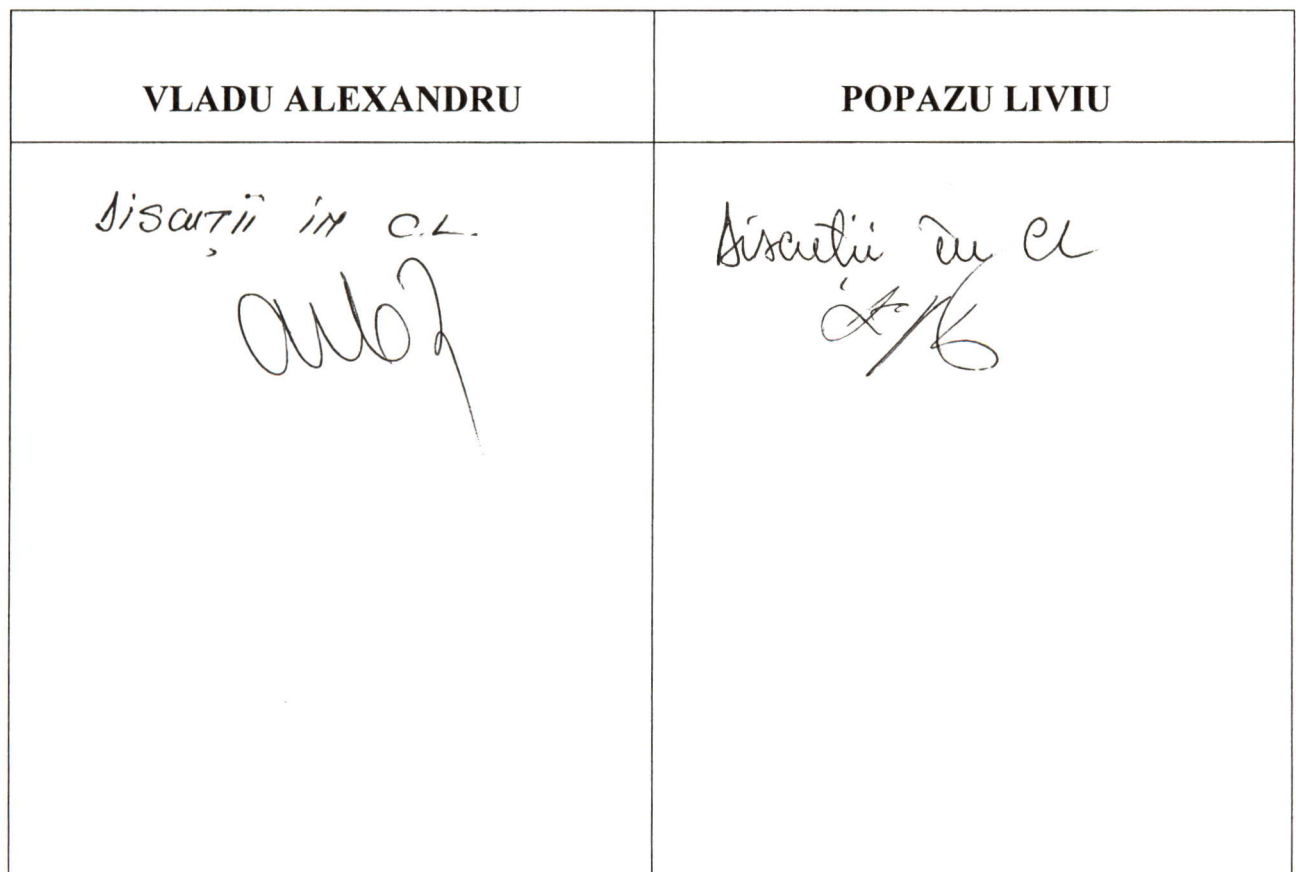 VLADU ALEXANDRU
POPAZU LIVIU
Discuții in C.L.
Discuții în CL